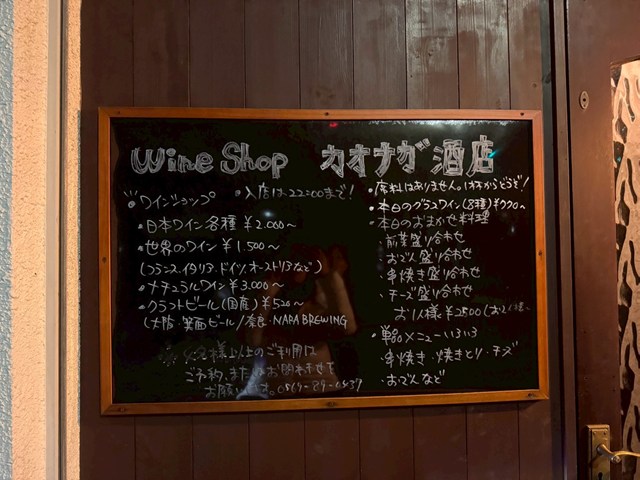 Wine Shop カオナガ酒店
ワインショップ
・入店は22:00まで!
・日本ワイン各種 ¥2.000〜
・世界のワイン ¥1.500〜
(フランス.イタリア.ドイツ.オーストリアなど)
・ナチュラルワイン ¥3.000〜
・クラフトビール(国産) ¥520〜
(大阪・箕面ビール/奈良・NARA BREWING
様以上のご利用は
ご予約、またはお問わせを
お願い
・席料はありません。1杯からどうぞ!
・本日のグラスワイン(8種)
・本日のおまかせ料理
・前菜盛り合わせ
・おでん盛り合わせ
・串焼き盛り合わせ
・チーズ盛り合わせ
お1人様¥2500
・単品メニューいろいろ
・串焼き・焼きとり・チーズ
・おでんなど